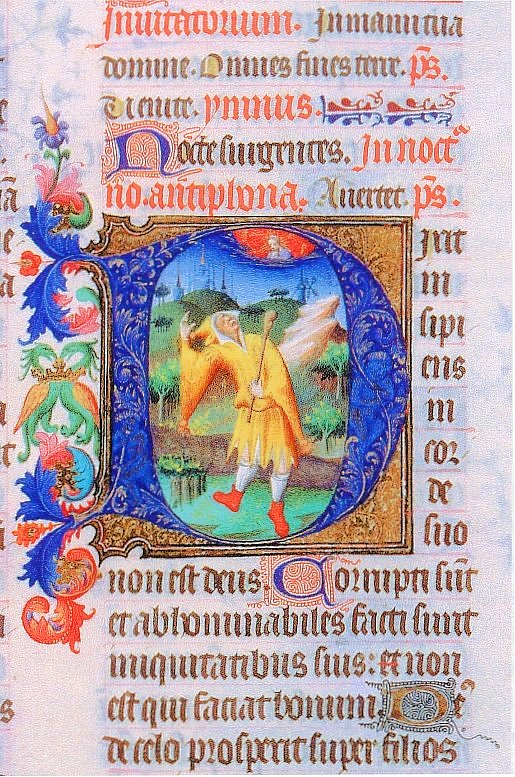 Inuitatorium. In manu tua
domine. Omnes fines terre. ps.
Venite. ymnus.
Nocte surgentes. In noctur
no. antiphona. Auertet. ps.
Dixit
in
sipi
ens
in
cor
de
suo
non est deus Corrupti sunt
et abhominabiles facti sunt
iniquitatibus suis: et non
est qui faciat bonum De
de celo prospexit super filios